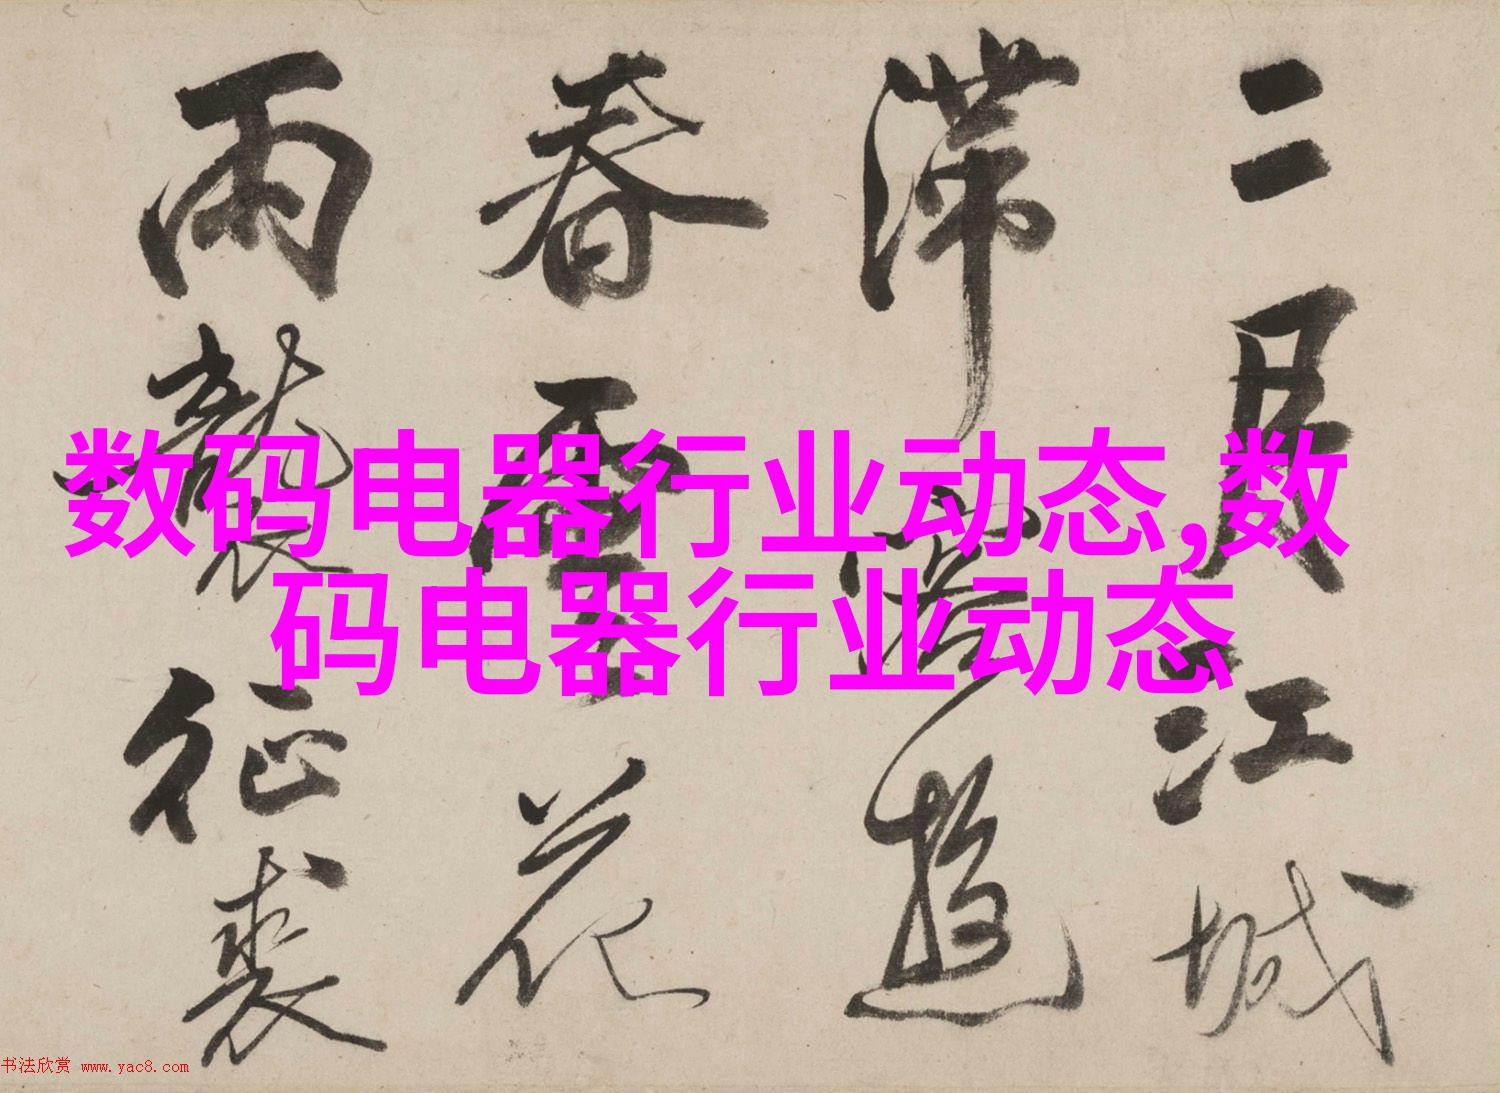 二月江城
滞客游
春雪花
雨袭征裘
数码电器行业动态,数
码电器行业动态
书法欣赏 www.yac8.com